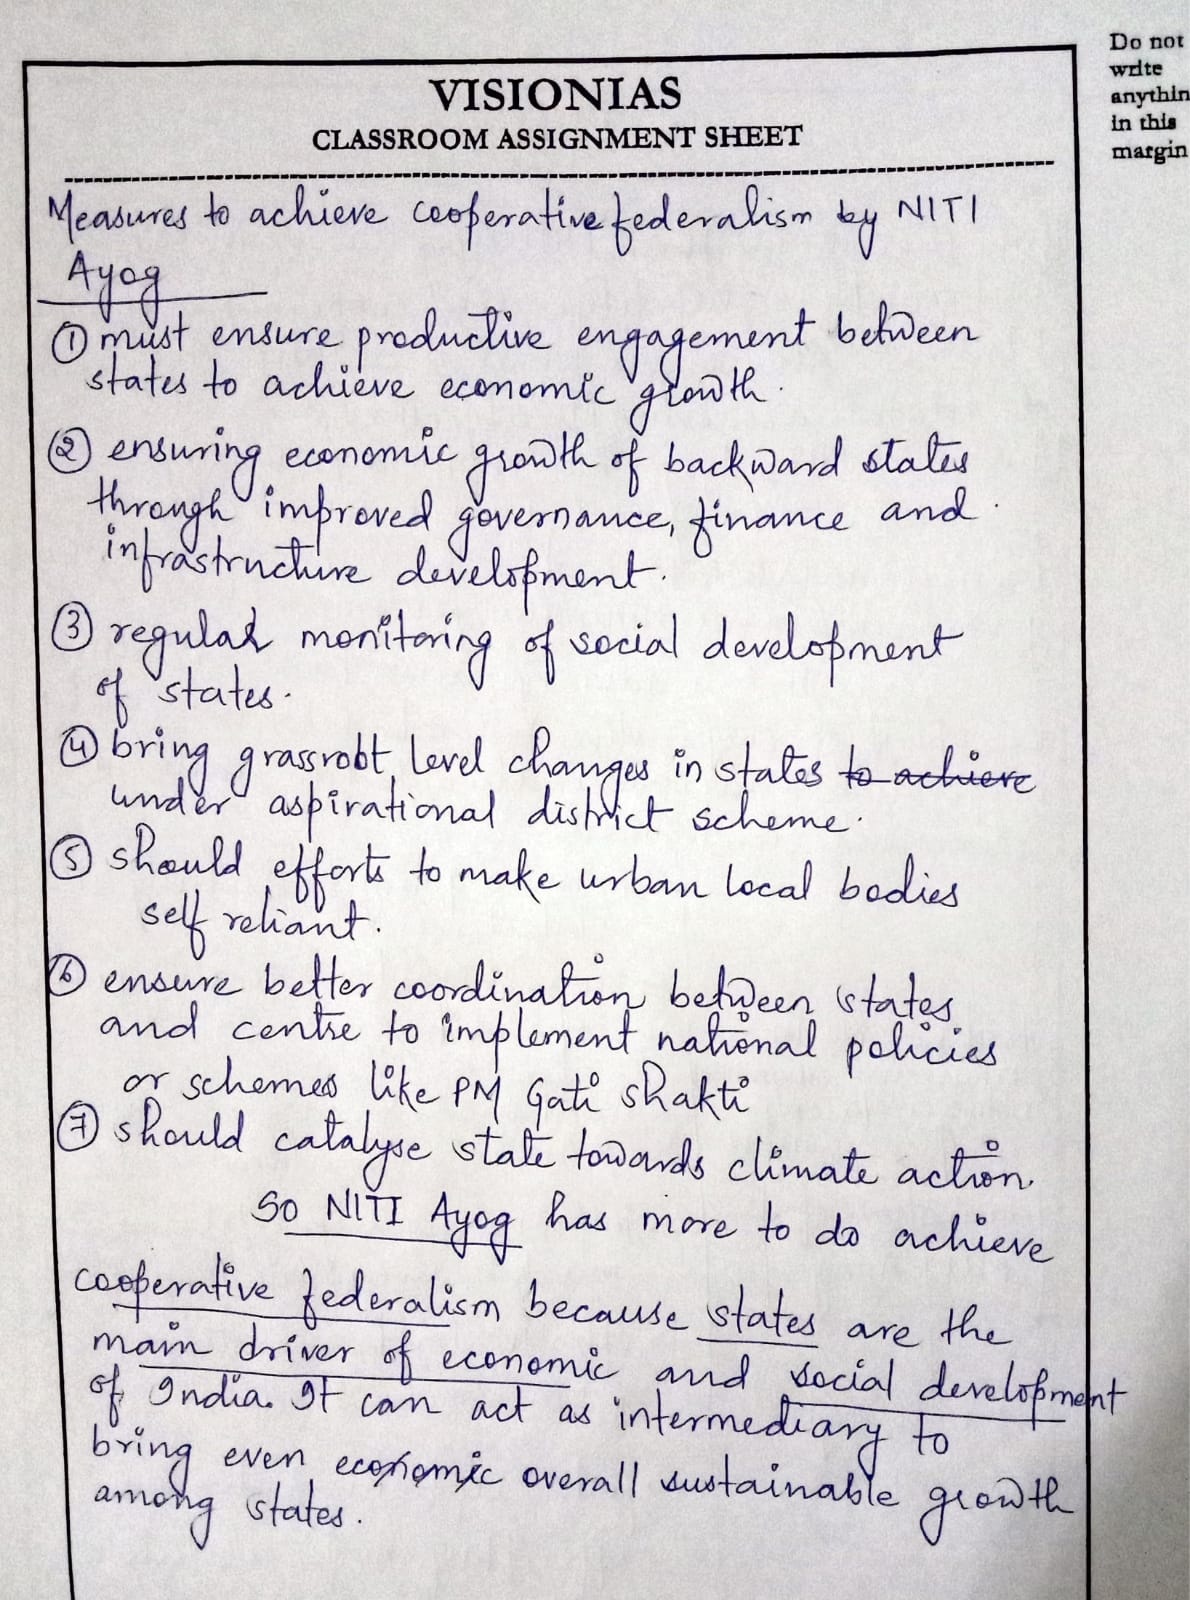 Do not
write
anythin
in this
margin
VISIONIAS
CLASSROOM ASSIGNMENT SHEET
Measures to achieve cooperative federalism by NITI
Ayog
① must ensure productive engagement between
states to achieve economic growth.
② ensuring economic growth of backward states
through improved governance, finance and
infrastructure development.
③ regular monitoring of social development
of states.
④ bring grassroot level changes in states to achieve
under aspirational district scheme.
⑤ should efforts to make urban local bodies
self reliant.
⑥ ensure better coordination between states
and centre to implement national policies
or schemes like PM Gati Shakti
⑦ should catalyse state towards climate action.
So NITI Ayog has more to do achieve
cooperative federalism because states are the
main driver of economic and social development
of India. It can act as intermediary to
bring even economic overall sustainable growth
among states.